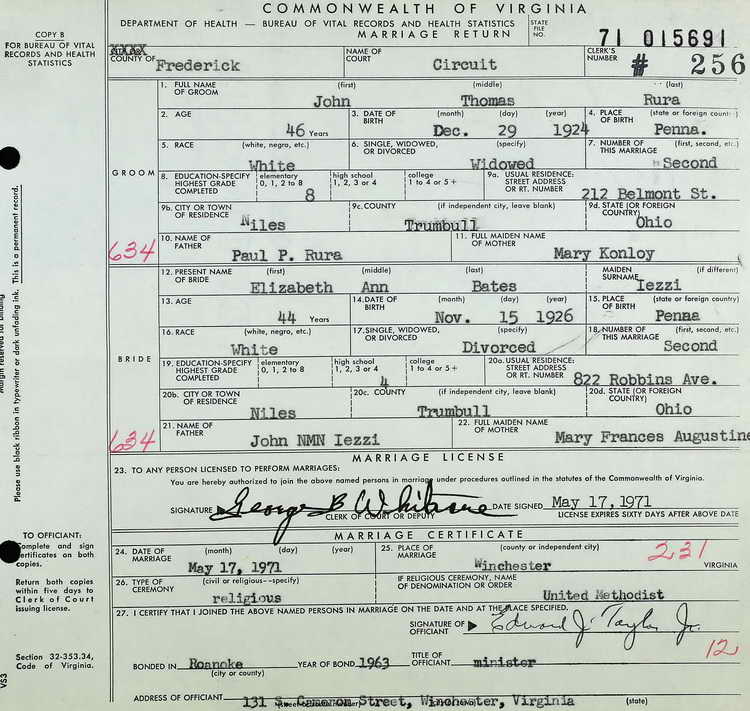 COMMONWEALTH OF VIRGINIA
DEPARTMENT OF HEALTH — BUREAU OF VITAL RECORDS AND HEALTH STATISTICS
MARRIAGE RETURN
COPY B
FOR BUREAU OF VITAL
RECORDS AND HEALTH
STATISTICS
STATE
FILE
NO. 71 015691
COUNTY OF Frederick
NAME OF
COURT Circuit
CLERK'S
NUMBER # 256
GROOM
1. FULL NAME OF GROOM (first) (middle) (last)
John Thomas Rura
2. AGE 3. DATE OF BIRTH (month) (day) (year) 4. PLACE OF BIRTH (state or foreign
46 Years Dec. 29 1924 Penna.
5. RACE (white, negro, etc.) 6. SINGLE, WIDOWED, OR DIVORCED (specify) 7. NUMBER OF THIS MARRIAGE (first, second, etc.)
White Widowed Second
8. EDUCATION-SPECIFY HIGHEST GRADE COMPLETED elementary 0, 1, 2 to 8 high school 1, 2, 3 or 4 college 1 to 4 or 5+ 9a. USUAL RESIDENCE: STREET ADDRESS OR RT. NUMBER
8 212 Belmont St.
9b. CITY OR TOWN OF RESIDENCE 9c. COUNTY (if independent city, leave blank) 9d. STATE (OR FOREIGN COUNTRY)
Niles Trumbull Ohio
10. NAME OF FATHER 11. FULL MAIDEN NAME OF MOTHER
634 Paul P. Rura Mary Konloy
BRIDE
12. PRESENT NAME OF BRIDE (first) (middle) (last) MAIDEN SURNAME (if different)
Elizabeth Ann Bates Iezzi
13. AGE 14. DATE OF BIRTH (month) (day) (year) 15. PLACE OF BIRTH (state or foreign country)
44 Years Nov. 15 1926 Penna
16. RACE (white, negro, etc.) 17. SINGLE, WIDOWED, OR DIVORCED (specify) 18. NUMBER OF THIS MARRIAGE (first, second, etc.)
White Divorced Second
19. EDUCATION-SPECIFY HIGHEST GRADE COMPLETED elementary 0, 1, 2 to 8 high school 1, 2, 3 or 4 college 1 to 4 or 5+ 20a. USUAL RESIDENCE: STREET ADDRESS OR RT. NUMBER
4 822 Robbins Ave.
20b. CITY OR TOWN OF RESIDENCE 20c. COUNTY (if independent city, leave blank) 20d. STATE (OR FOREIGN COUNTRY)
Niles Trumbull Ohio
21. NAME OF FATHER 22. FULL MAIDEN NAME OF MOTHER
634 John NMN Iezzi Mary Frances Augustine
MARRIAGE LICENSE
23. TO ANY PERSON LICENSED TO PERFORM MARRIAGES:
You are hereby authorized to join the above named persons in marriage under procedures outlined in the statutes of the Commonwealth of Virginia.
SIGNATURE George B Whitacre DATE SIGNED May 17, 1971
CLERK OF COURT OR DEPUTY LICENSE EXPIRES SIXTY DAYS AFTER ABOVE DATE
MARRIAGE CERTIFICATE
24. DATE OF MARRIAGE (month) (day) (year) 25. PLACE OF MARRIAGE (county or independent city) 231
May 17, 1971 Winchester VIRGINIA
26. TYPE OF CEREMONY (civil or religious--specify) IF RELIGIOUS CEREMONY, NAME OF DENOMINATION OR ORDER
religious United Methodist
27. I CERTIFY THAT I JOINED THE ABOVE NAMED PERSONS IN MARRIAGE ON THE DATE AND AT THE PLACE SPECIFIED.
SIGNATURE OF OFFICIANT Edward J. Taylor Jr.
12
BONDED IN Roanoke YEAR OF BOND 1963 TITLE OF OFFICIANT minister
(city or county)
ADDRESS OF OFFICIANT 131 S. Cameron Street, Winchester, Virginia (state)
Please use black ribbon in typewriter or dark unfading ink. This is a permanent record.
Margin reserved for binding
TO OFFICIANT:
Complete and sign
certificates on both
copies.
Return both copies
within five days to
Clerk of Court
issuing license.
Section 32-353.34,
Code of Virginia.
VS3